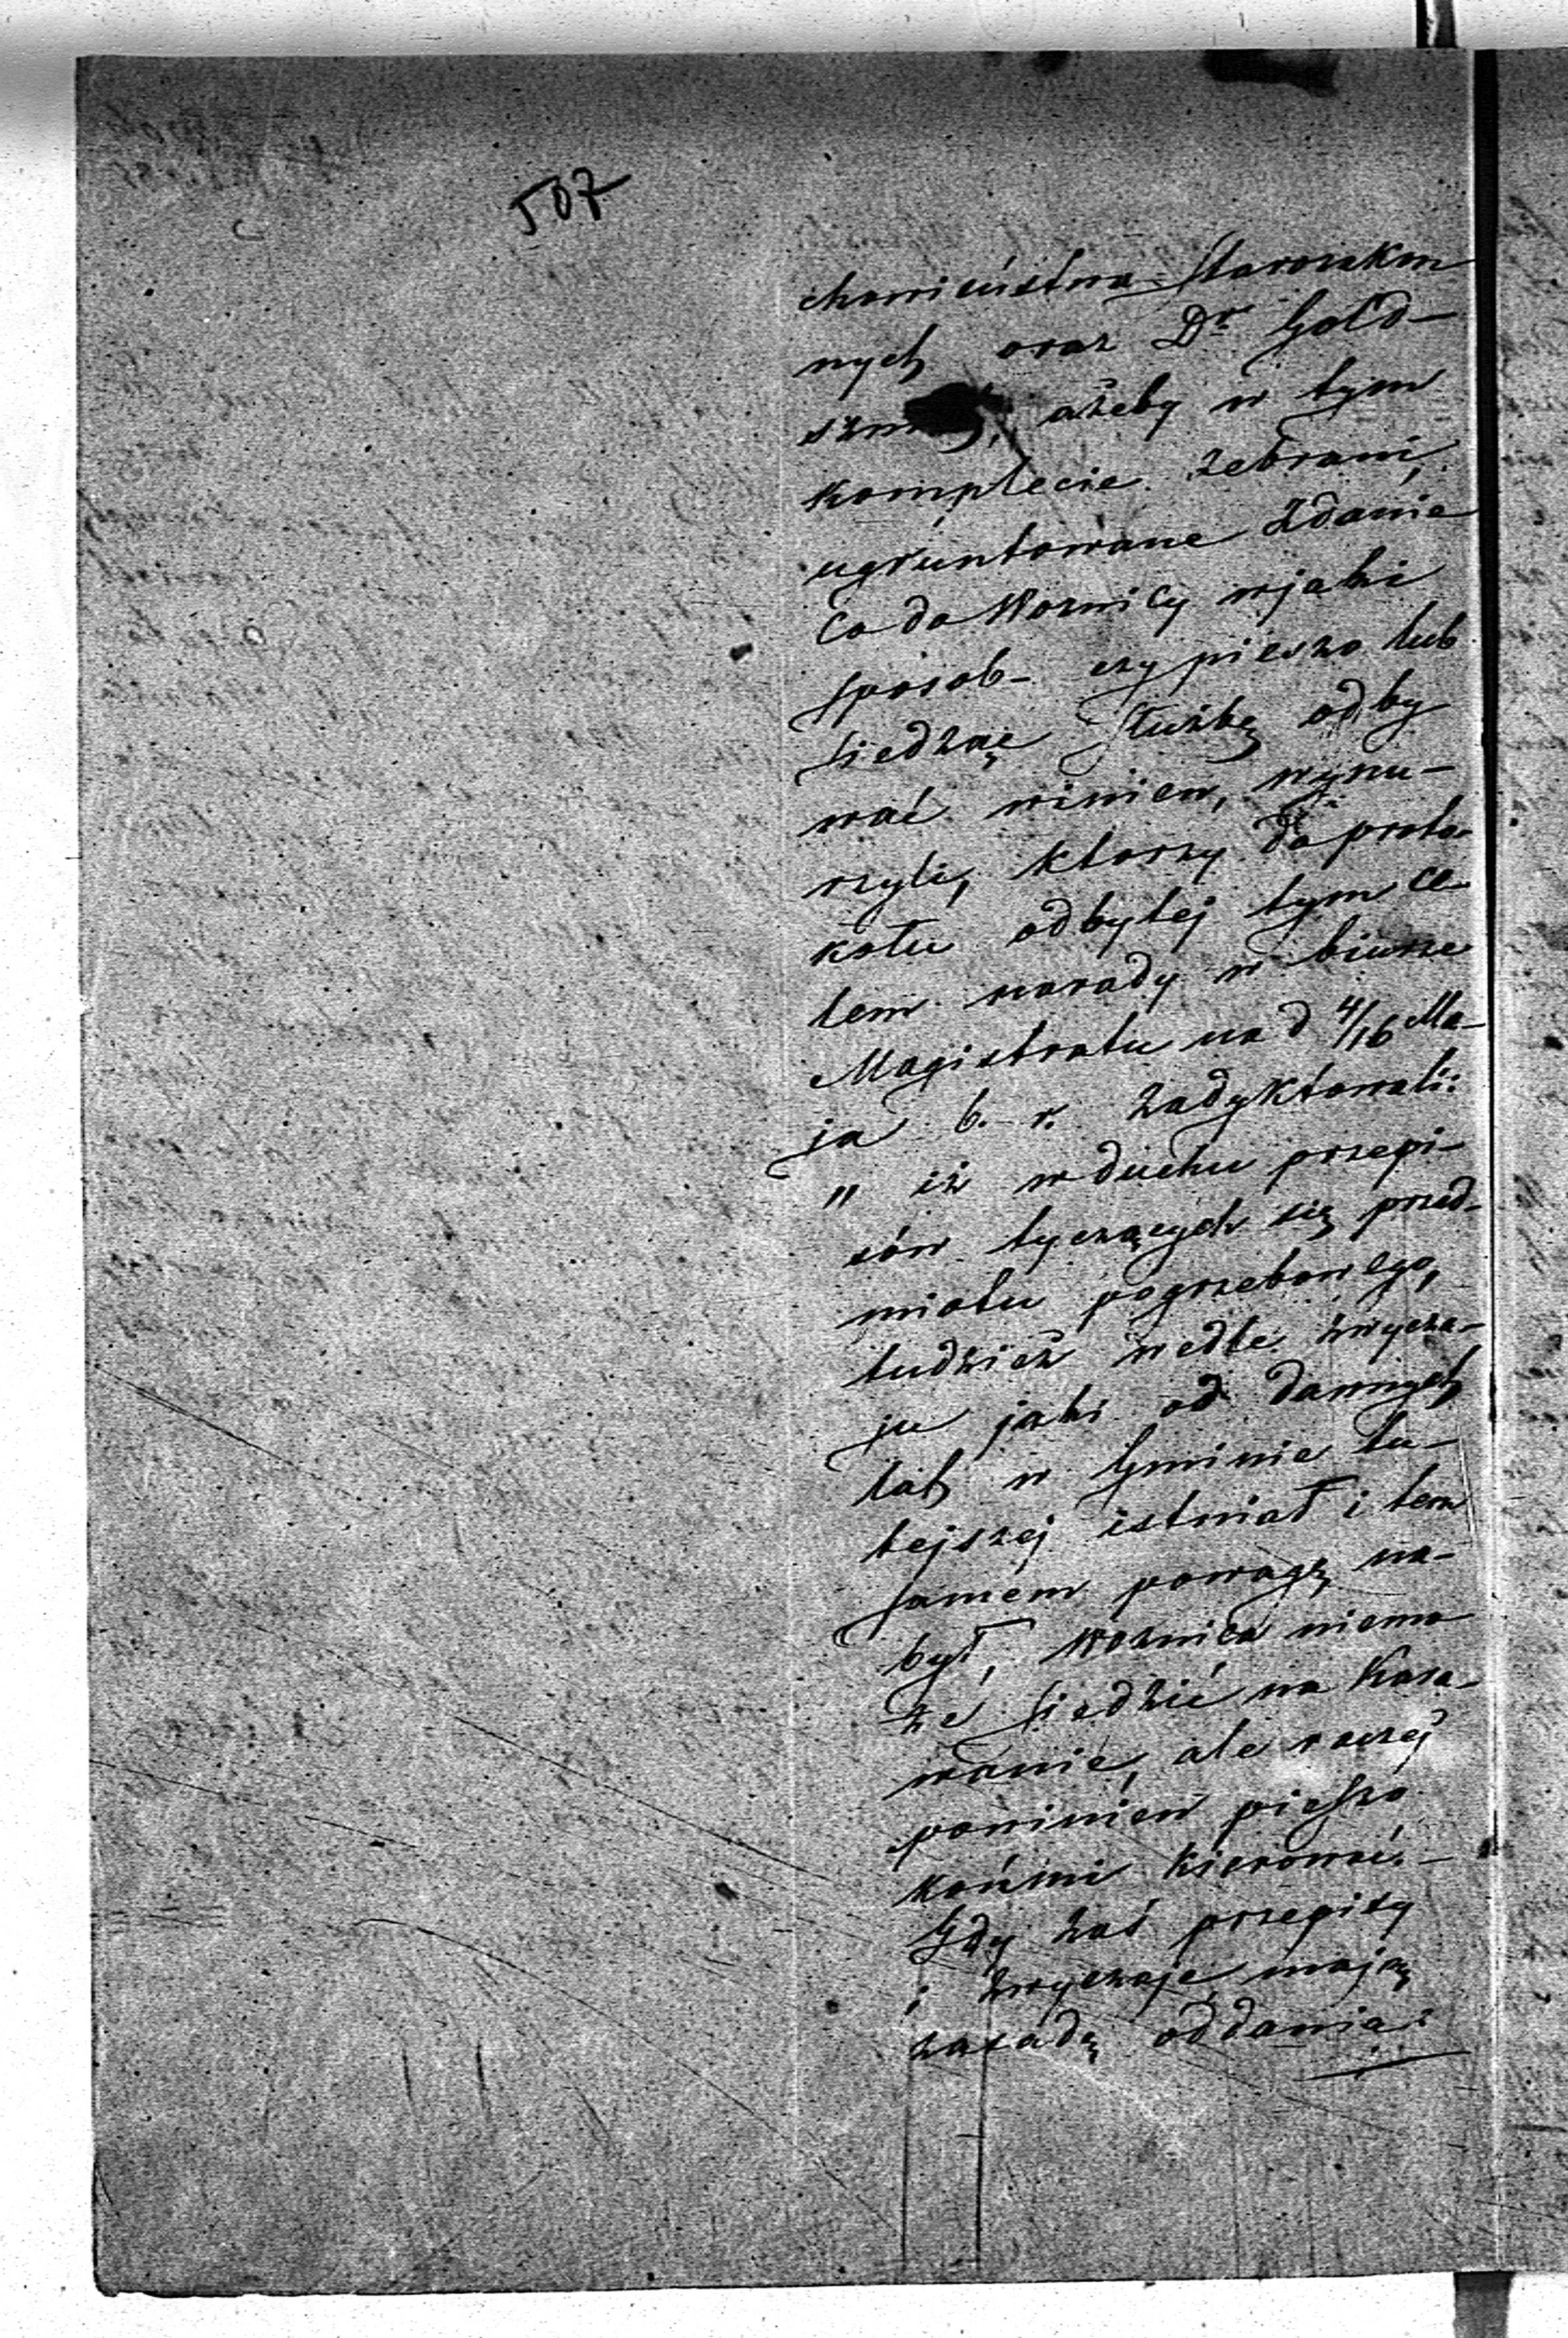 507
chowieństwa Starozakon
nych oraz Dr Gold-
ażeby w tym
komplecie zebrani,
ugruntowane zdanie
co do Woznicy w jaki
sposob - czy pieszo lub
siedząc służbę odby
wać winien, wynu-
rzyli, ktorzy do proto-
kołu odbytej tym ce-
lem narady w biurze
Magistratu na d 4/16 Ma-
ja b. r. zadyktowali:
„ iż w duchu przepi-
sów tyczących się przed-
miotu pogrzebowego,
tudzież wedle zwycza-
ju jaki od dawnych
lat w Gminie tu-
tejszej istniał i tem
samem powagę na-
był, Woznica niemo
że siedzić na Kara-
wanie, ale raczej
powinien pieszo
końmi kierować. -
Gdy zaś przepisy
i zwyczaje mają
zasadę oddania: